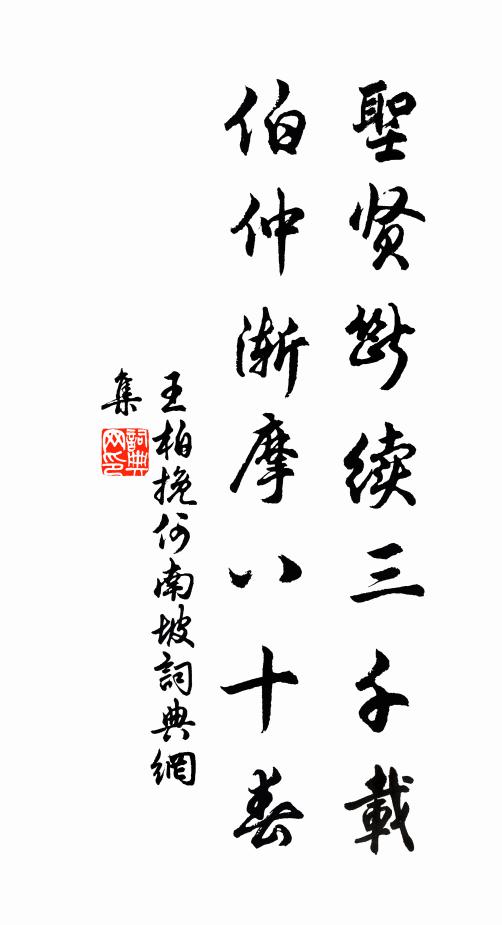 聖賢斷續三千載
伯仲漸摩八十春
王柏挽何南坡詞典網
集
詞典網印